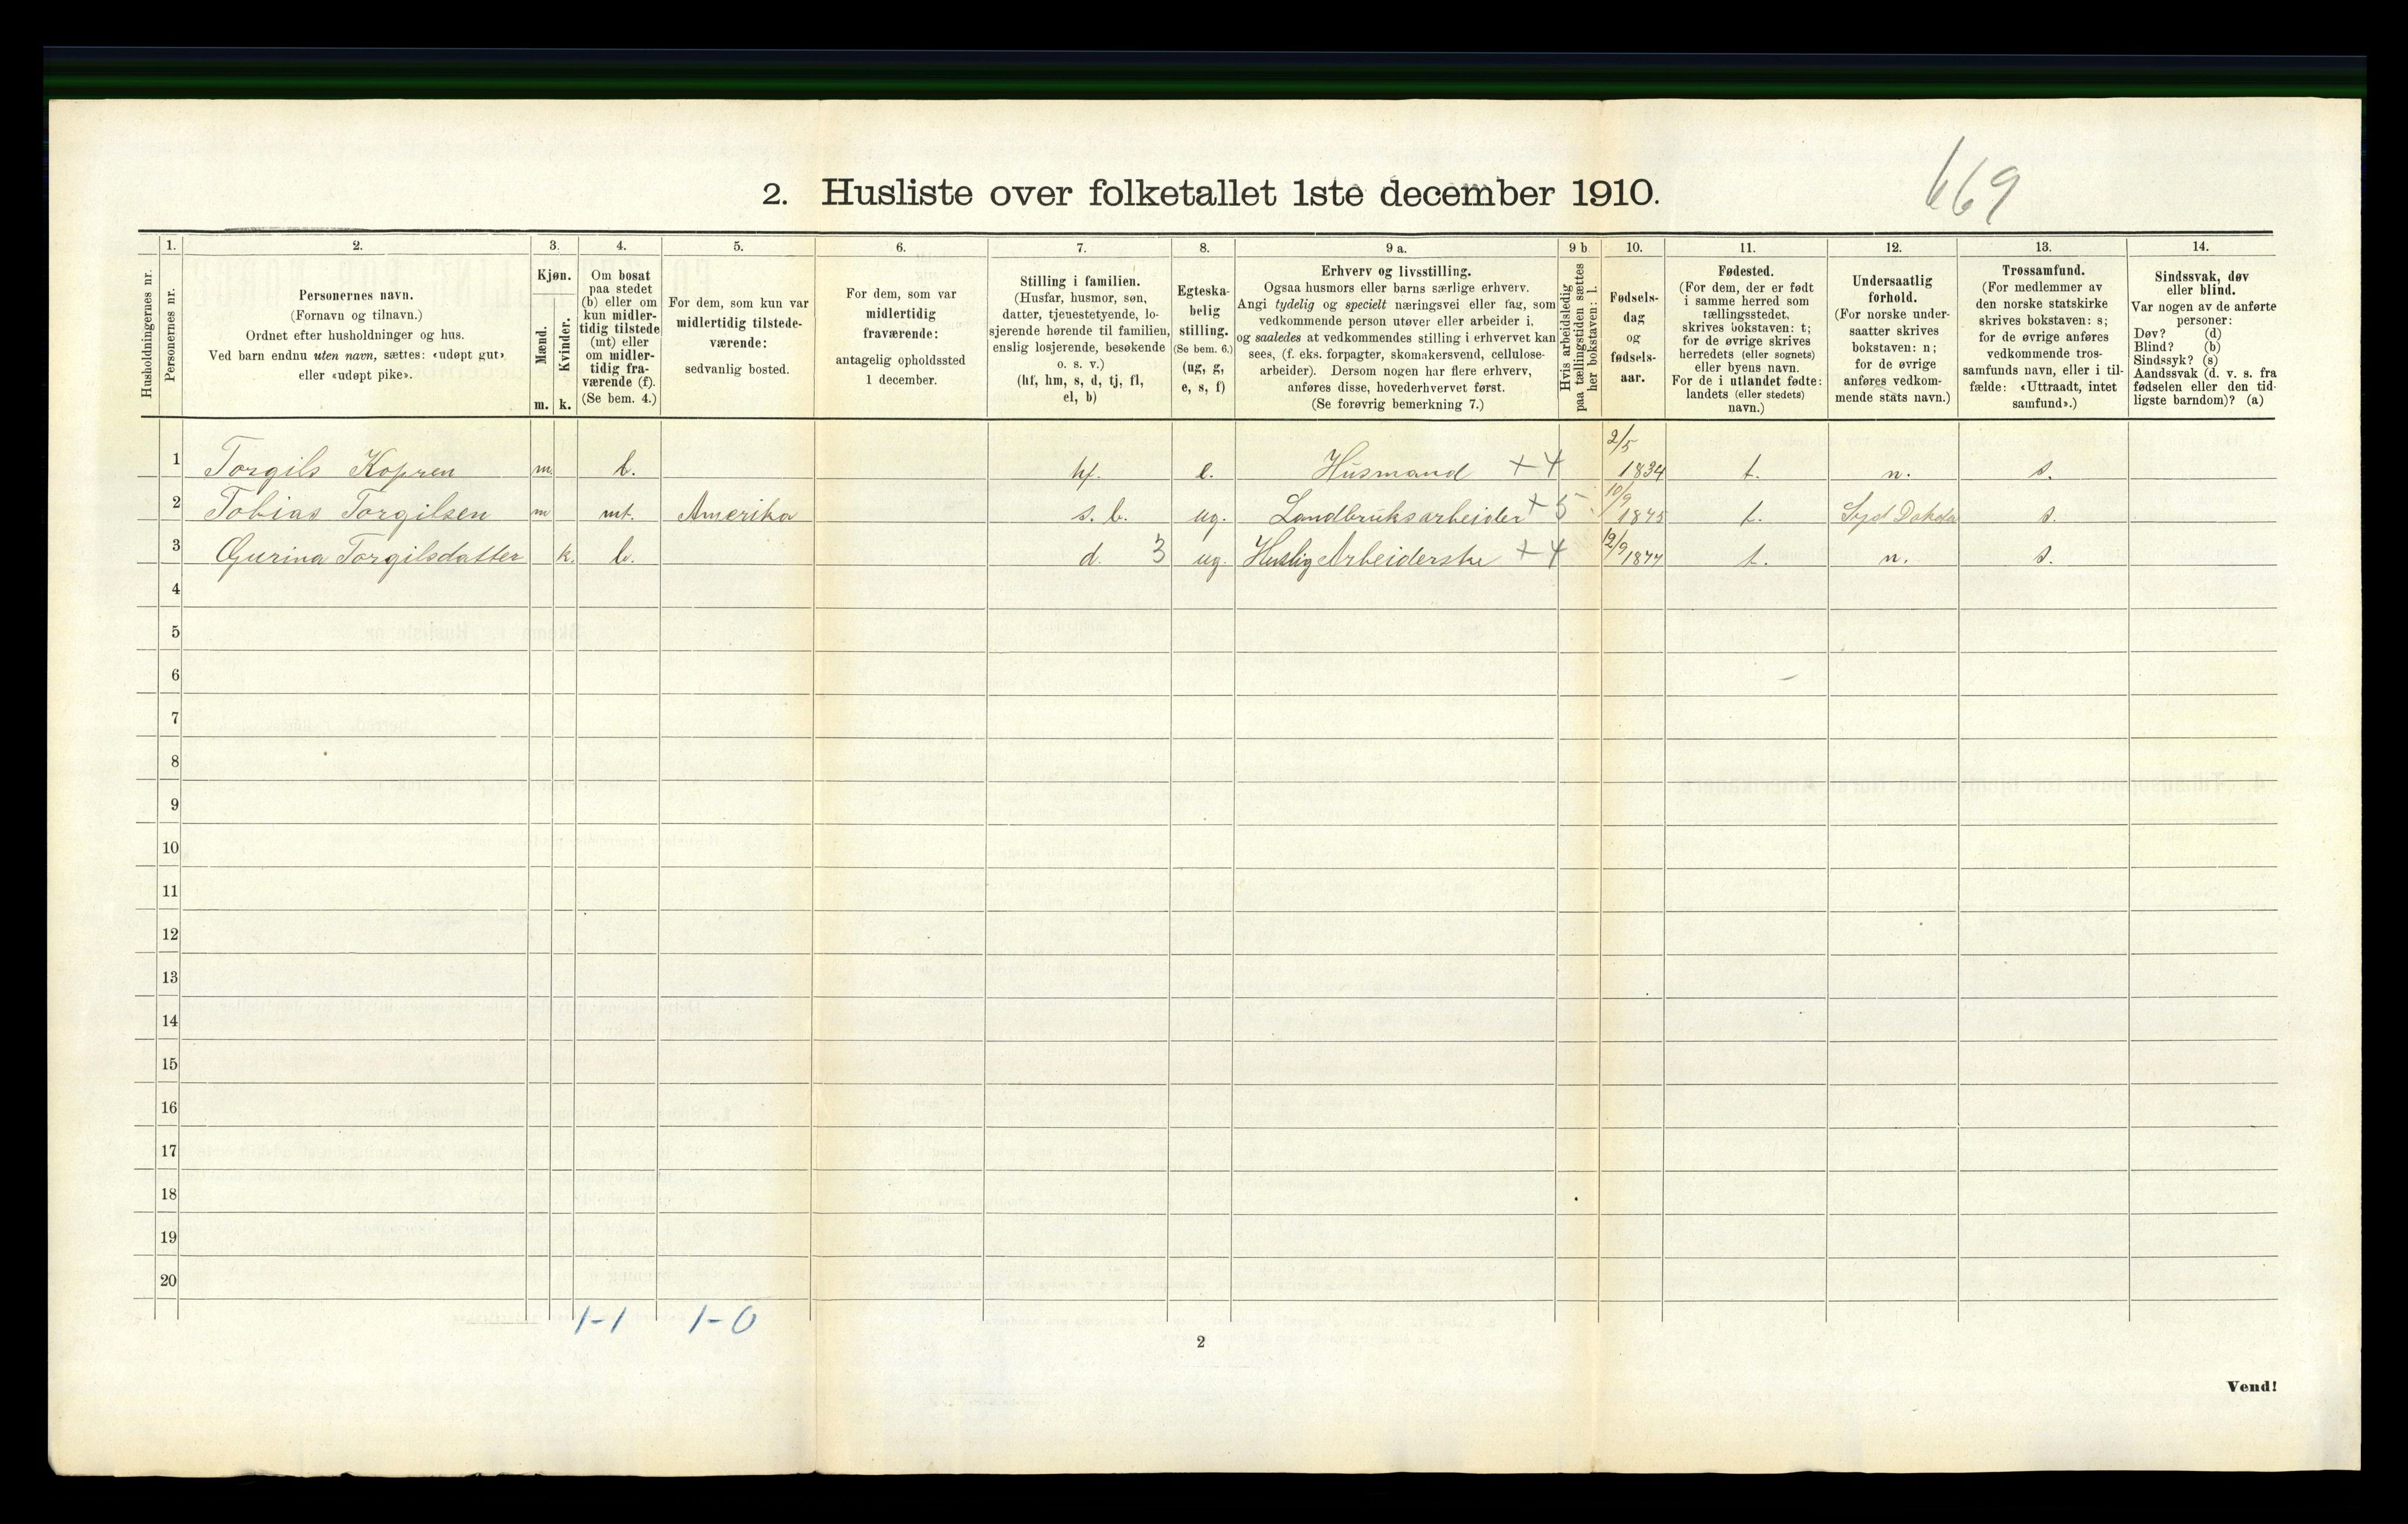 669
2. Husliste over folketallet 1ste december 1910.
Husholdningernes nr.
1. Personernes nr.
2. Personernes navn.
(Fornavn og tilnavn.)
Ordnet efter husholdninger og hus.
Ved barn endnu uten navn, sættes: «udøpt gut»
eller «udøpt pike».
3. Kjøn.
Mænd. m.
Kvinder. k.
4. Om bosat
paa stedet
(b) eller om
kun midler-
tidig tilstede
(mt) eller
om midler-
tidig fra-
værende (f).
(Se bem. 4.)
5. For dem, som kun var
midlertidig tilstede-
værende:
sedvanlig bosted.
6. For dem, som var
midlertidig
fraværende:
antagelig opholdssted
1 december.
7. Stilling i familien.
(Husfar, husmor, søn,
datter, tjenestetyende, lo-
sjerende hørende til familien,
enslig losjerende, besøkende
o. s. v.)
(hf, hm, s, d, tj, fl,
el, b)
8. Egteska-
belig
stilling.
(Se bem. 6.)
(ug, g,
e, s, f)
9 a. Erhverv og livsstilling.
Ogsaa husmors eller barns særlige erhverv.
Angi tydelig og specielt næringsvei eller fag, som
vedkommende person utøver eller arbeider i,
og saaledes at vedkommendes stilling i erhvervet kan
sees, (f. eks. forpagter, skomakersvend, cellulose-
arbeider). Dersom nogen har flere erhverv,
anføres disse, hovederhvervet først.
(Se forøvrig bemerkning 7.)
9 b. Hvis arbeidsledig
paa tællingstiden sættes
her bokstaven: l.
10. Fødsels-
dag
og
fødsels-
aar.
11. Fødested.
(For dem, der er født
i samme herred som
tællingsstedet,
skrives bokstaven: t;
for de øvrige skrives
herredets (eller sognets)
eller byens navn.
For de i utlandet fødte:
landets (eller stedets)
navn.)
12. Undersaatlig
forhold.
(For norske under-
saatter skrives
bokstaven: n;
for de øvrige
anføres vedkom-
mende stats navn.)
13. Trossamfund.
(For medlemmer av
den norske statskirke
skrives bokstaven: s;
for de øvrige anføres
vedkommende tros-
samfunds navn, eller i til-
fælde: «Uttraadt, intet
samfund».)
14. Sindssvak, døv
eller blind.
Var nogen av de anførte
personer:
Døv? (d)
Blind? (b)
Sindssyk? (s)
Aandssvak (d. v. s. fra
fødselen eller den tid-
ligste barndom)? (a)
1 Torgils Kopren m. b. hf. e. Husmand +4 2/5 1834 t. n. s.
2 Tobias Torgilsen m mt. Amerika s. b. ug. Landbruksarbeider +5 10/9 1875 t. Syd Dakota s.
3 Gurina Torgilsdatter k. b. d. 3 ug. Huslig Arbeiderske +4 12/9 1877 t. n. s.
4
5
6
7
8
9
10
11
12
13
14
15
16
17
18
19
20
1-1 1-0
2
Vend!